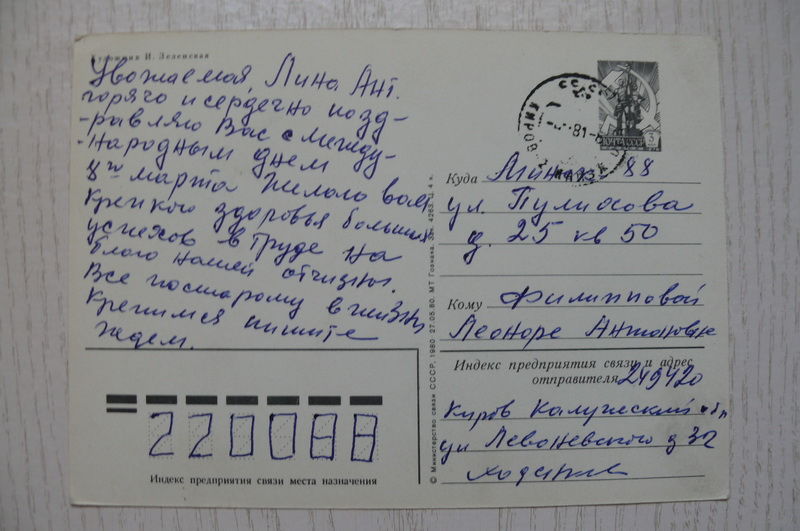 Художник И. Зеленская
Уважаемая Лина Ант.
горячо и сердечно позд-
-равляю Вас с между-
-народным днем
8го марта Желаю вам
крепкого здоровья больших
успехов в труде на
благо нашей отчизны.
Все постарому в жизни
Крепимся пишите
ждем.
СССР
КИРОВ
81
ПОЧТА СССР
3
Куда Минск 88
ул. Пулихова
д. 25 кв 50
Кому Филипповой
Леоноре Антоновне
Индекс предприятия связи и адрес
отправителя 249420
Киров Калужской обл
ул Леваневского д 32
220088
Индекс предприятия связи места назначения
© Министерство связи СССР, 1980. 27.05.80. МТ Гознака. Зак. 4 к.